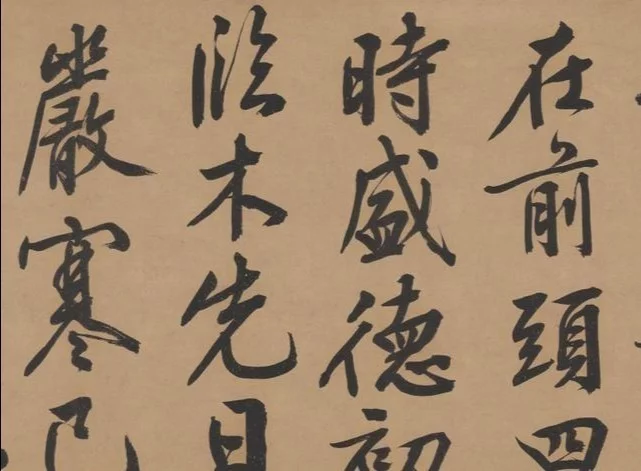 在前頭四
時盛德初
臨木先日
嚴寒已